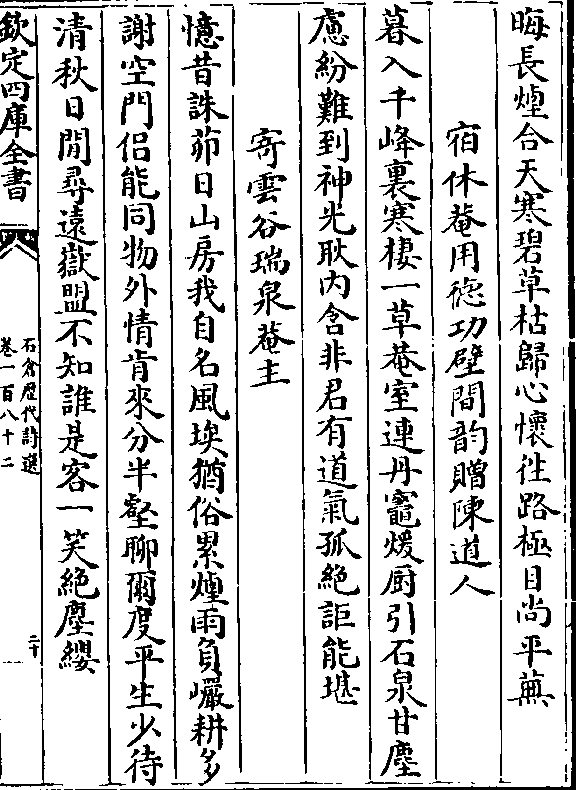 晦長煙合天寒碧草枯歸心懷往路極目尚平蕪
宿休菴用徳功壁間韵贈陳道人
暮入千峰裏寒棲一草菴室連丹竈煖厨引石泉甘塵
慮紛難到神光耿内含非君有道氣孤絶詎能堪
寄雲谷瑞泉菴主
憶昔誅茆日山房我自名風埃猶俗累煙雨負巖耕多
謝空門侣能同物外情肯來分半壑聊爾度平生少待
清秋日閒尋遠嶽盟不知誰是客一笑絶塵纓
欽定四庫全書
石倉歴代詩選
卷一百八十二
二十